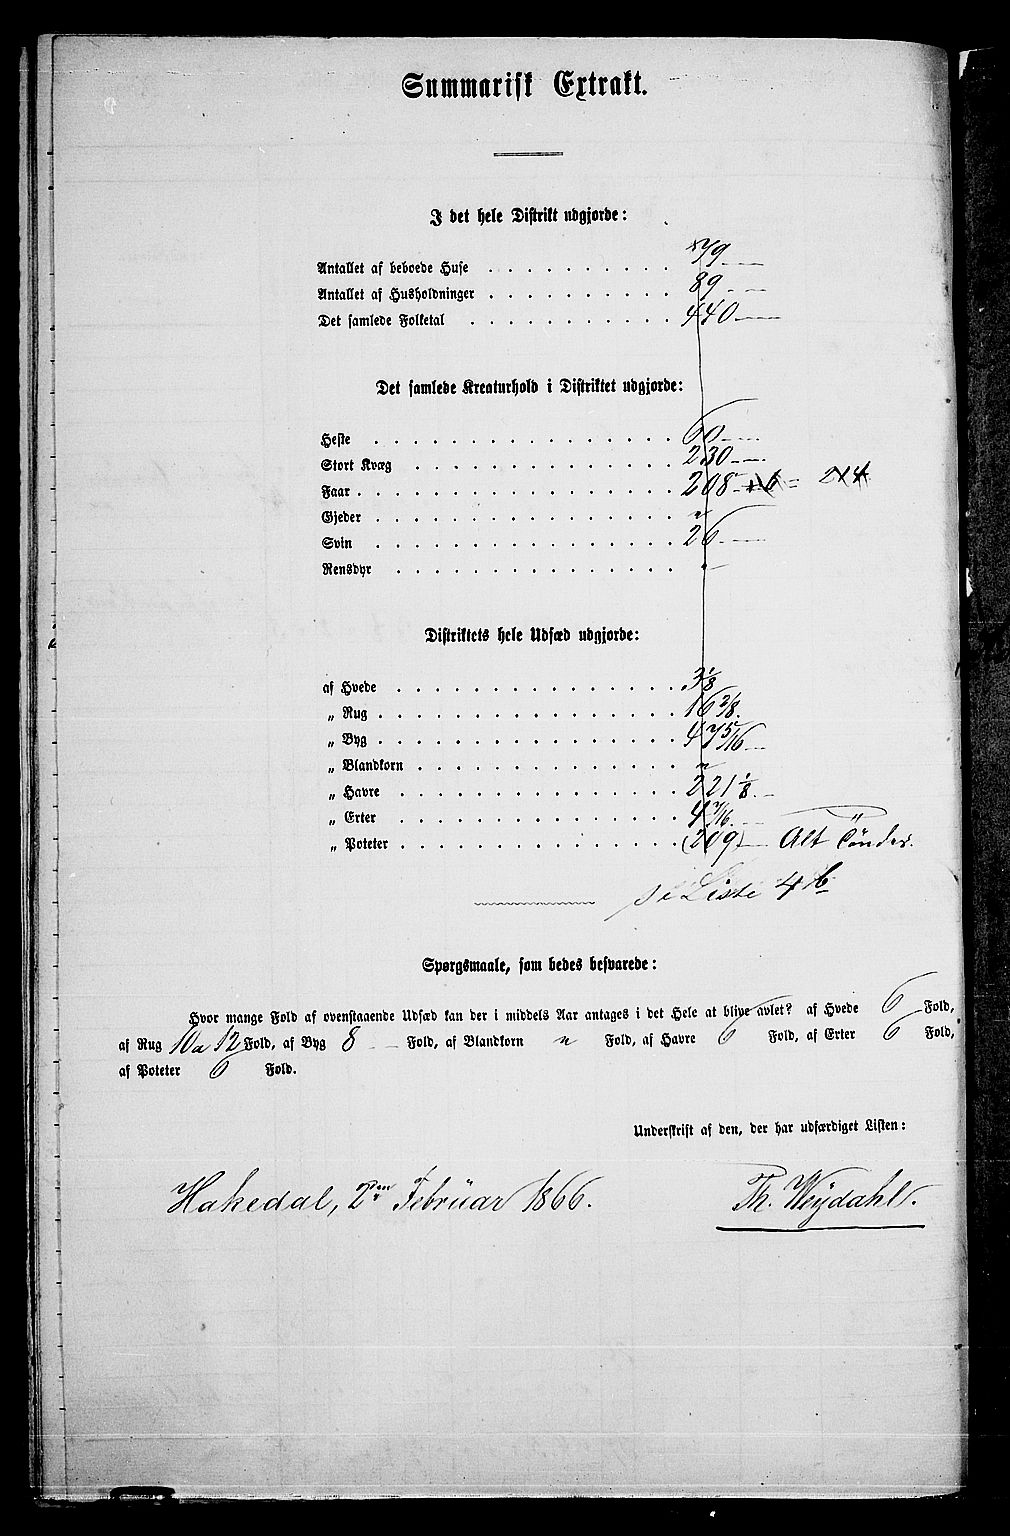 Summarisk Extrakt.
I det hele Distrikt udgjorde:
Antallet af beboede Huse . . . . . . . . . . 79
Antallet af Husholdninger . . . . . . . . . . 89
Det samlede Folketal . . . . . . . . . . . 440
Det samlede Kreaturhold i Distriktet udgjorde:
Heste . . . . . . . . . . . . . . . . 60
Stort Kvæg . . . . . . . . . . . . . . 230
Faar . . . . . . . . . . . . . . . . . 208 + 6 = 214
Gjeder . . . . . . . . . . . . . . . . "
Svin . . . . . . . . . . . . . . . . 26
Rensdyr . . . . . . . . . . . . . . .
Distriktets hele Udsæd udgjorde:
af Hvede . . . . . . . . . . . . . . . 3 1/8
„ Rug . . . . . . . . . . . . . . . . 16 2/8.
„ Byg . . . . . . . . . . . . . . . . 47 5/16
„ Blandkorn . . . . . . . . . . . . . "
„ Havre . . . . . . . . . . . . . . . 221 1/8.
„ Erter . . . . . . . . . . . . . . . 4 7/16.
„ Poteter . . . . . . . . . . . . . . . (209) Alt Tönder.
se Liste 4 b
Spørgsmaale, som bedes besvarede:
Hvor mange Fold af ovenstaaende Udsæd kan der i middels Aar antages i det Hele at blive avlet? af Hvede 6 Fold,
af Rug 10 a 12 Fold, af Byg 8 Fold, af Blandkorn " Fold, af Havre 6 Fold, af Erter 6 Fold,
af Poteter 6 Fold.
Underskrift af den, der har udfærdiget Listen:
Hakedal, 2den Februar 1866. Th. Weydahl.